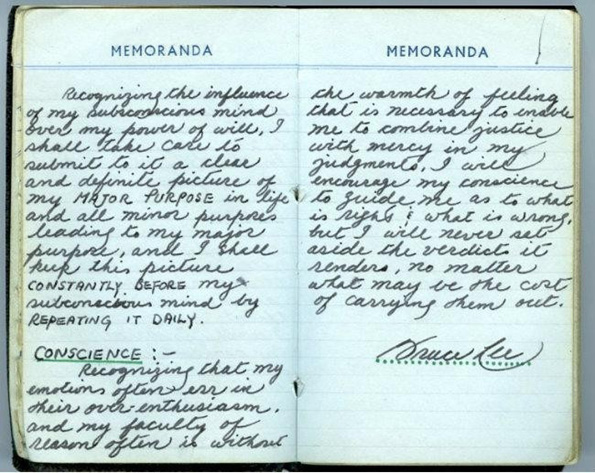 MEMORANDA
Recognizing the influence
of my subconscious mind
over my power of will, I
shall take care to
submit to it a clear
and definite picture of
my MAJOR PURPOSE in life
and all minor purposes
leading to my major
purpose, and I shall
keep this picture
CONSTANTLY BEFORE my
subconscious mind by
REPEATING IT DAILY.
CONSCIENCE :-
Recognizing that my
emotions often err in
their over-enthusiasm,
and my faculty of
reason often is without
MEMORANDA
the warmth of feeling
that is necessary to enable
me to combine justice
with mercy in my
judgments, I will
encourage my conscience
to guide me as to what
is right & what is wrong,
but I will never set
aside the verdicts it
renders, no matter
what may be the cost
of carrying them out.
Bruce Lee